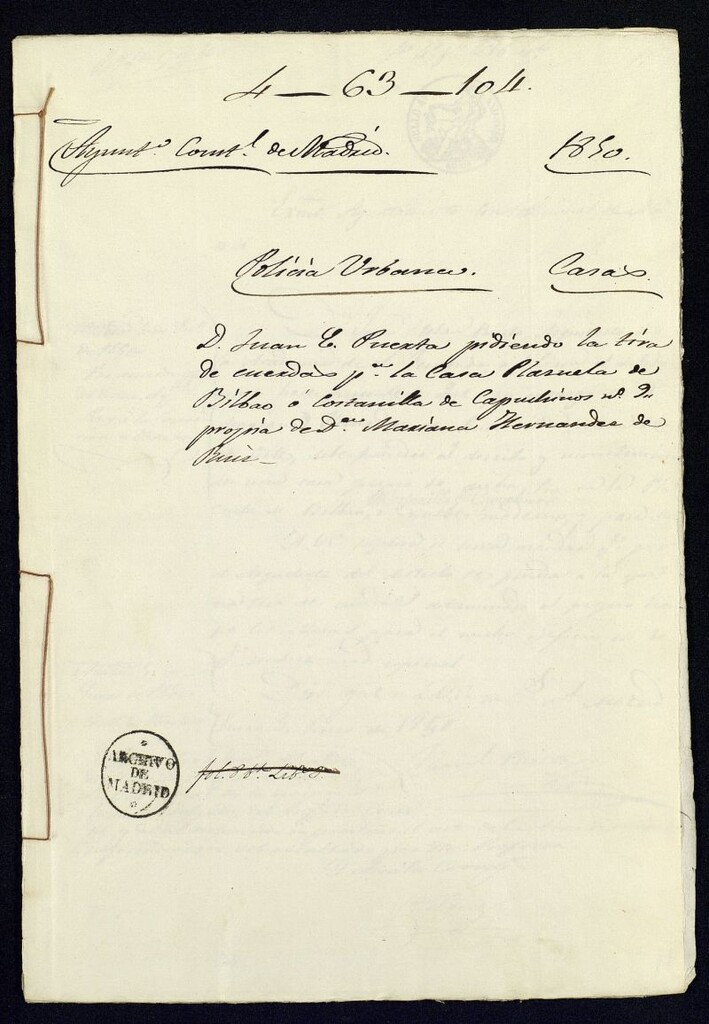 4 — 63 — 104.
Ayunt.º Const.l de Madrid. 1850.
Policia Urbana. Casas
D. Juan E. Puerta pidiendo la tira
de cuerdas p.ª la Casa Plazuela de
Bilbao ó Costanilla de Capuchinos nº 9
propia de D.ª Mariana Hernandez de
ARCHIVO
DE
MADRID